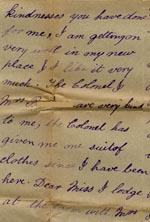 kindnesses you have done
for me, I am getting on
very well in my new
place I like it very
much. The Colonel &
Mrs are very kind
to me, the Colonel has
given me one suit of
clothes since I have been
here. Dear Miss I lodge
at the with Mrs